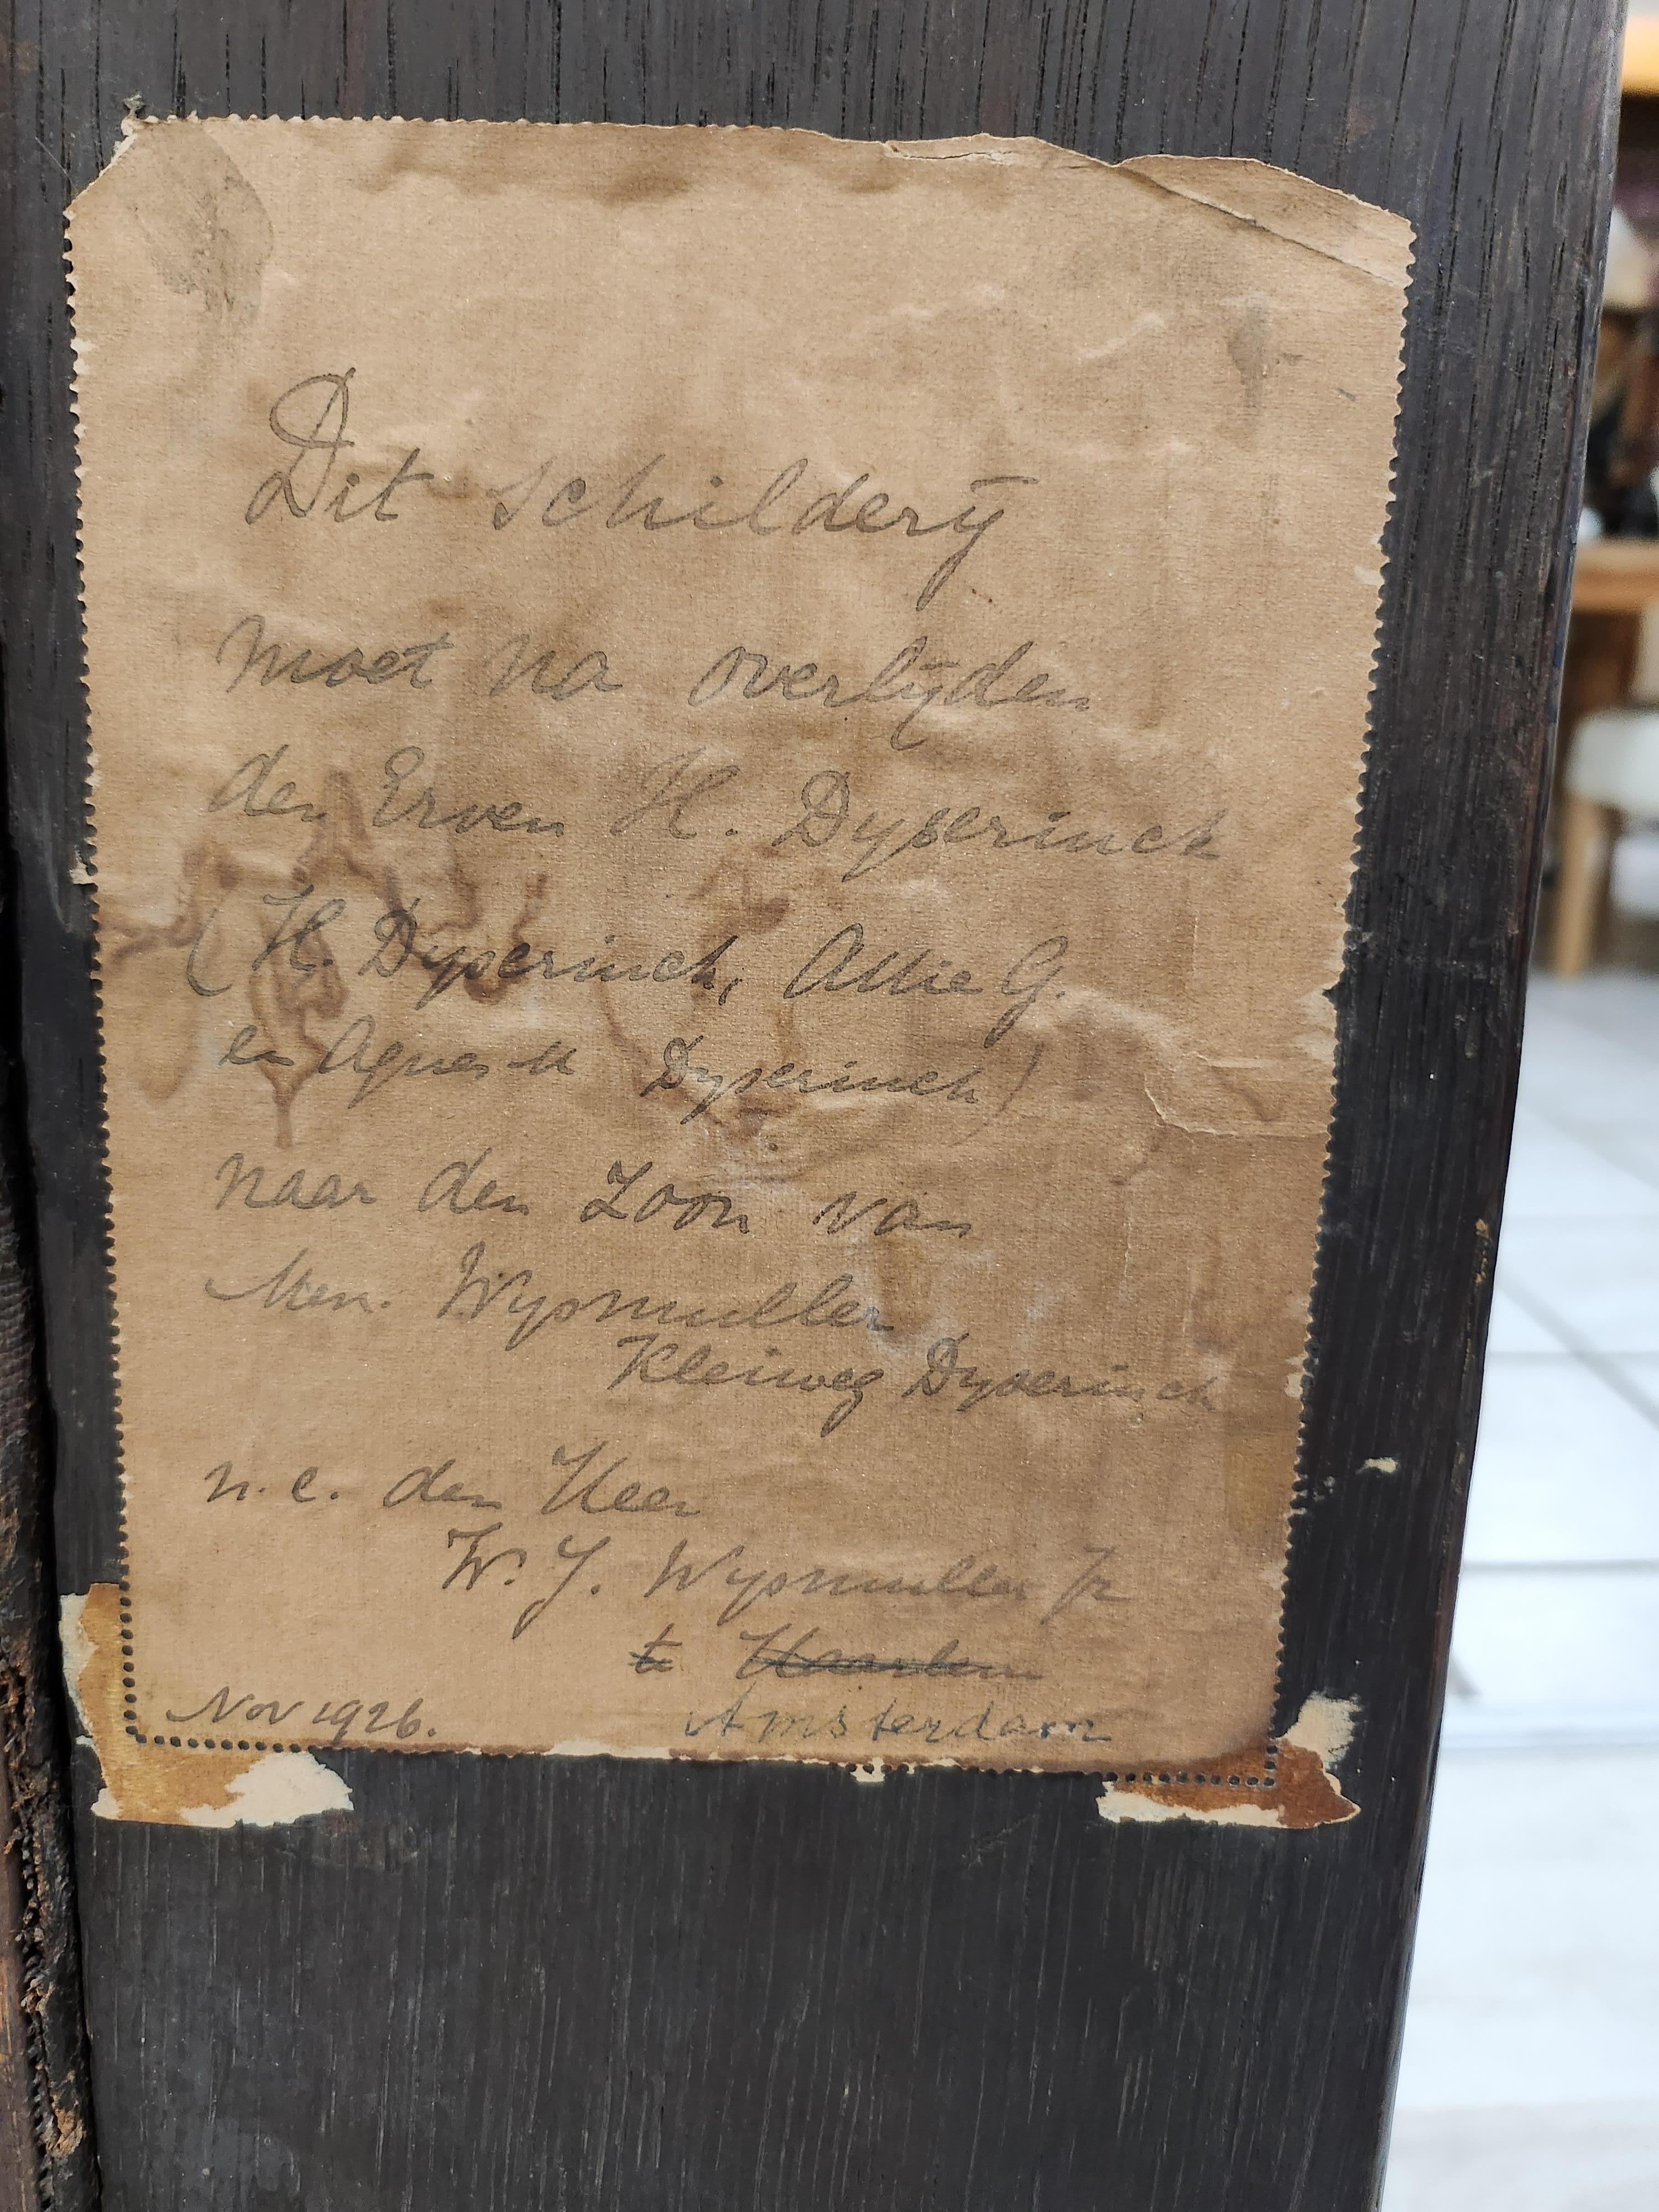 Dit schilderÿ
moet na overlÿden
den Erven H. Dyserinck
(H. Dyserinck, Attie G.
en Agnes M Dyserinck)
naar den Zoon van
Mevr. Wysmuller
Kleiweg Dyserinck
n.e. den Heer
W. J. Wysmuller Jr
te Haarlem
Nov 1926. Amsterdam